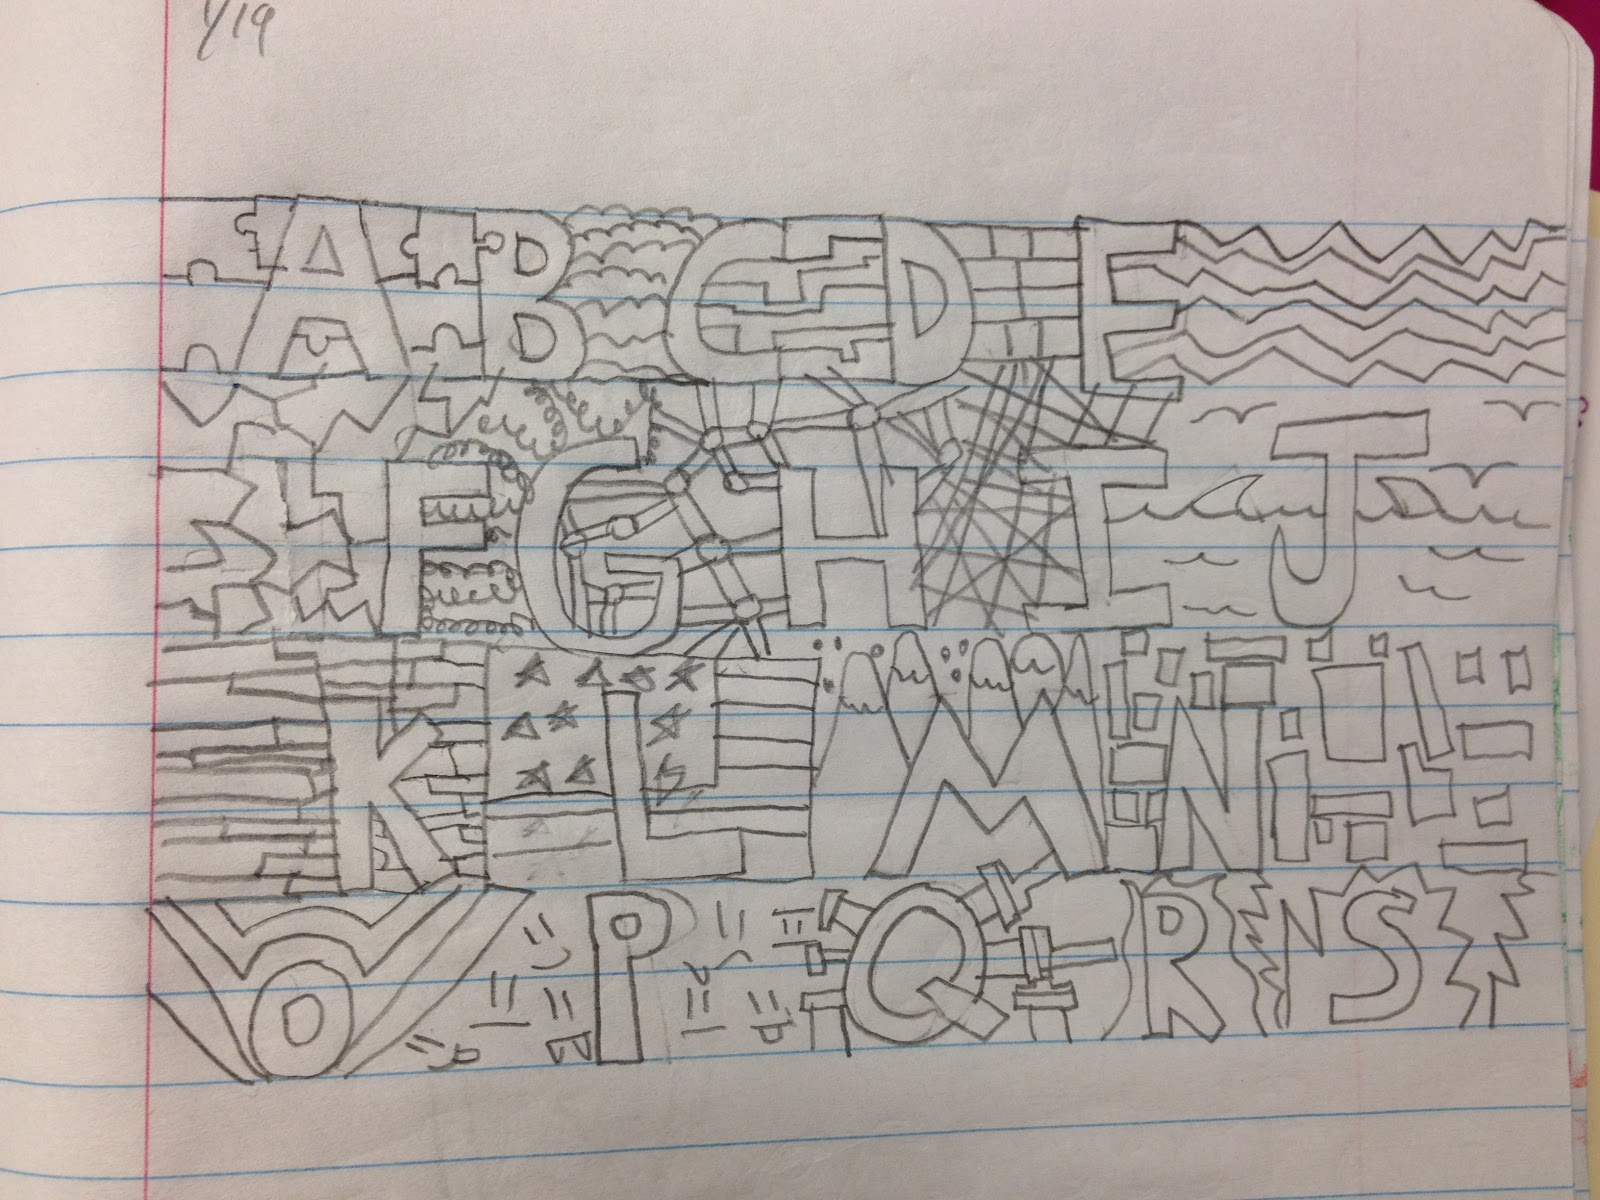 1/19
ABCDE
FGHIJ
KLMN
OPQRS